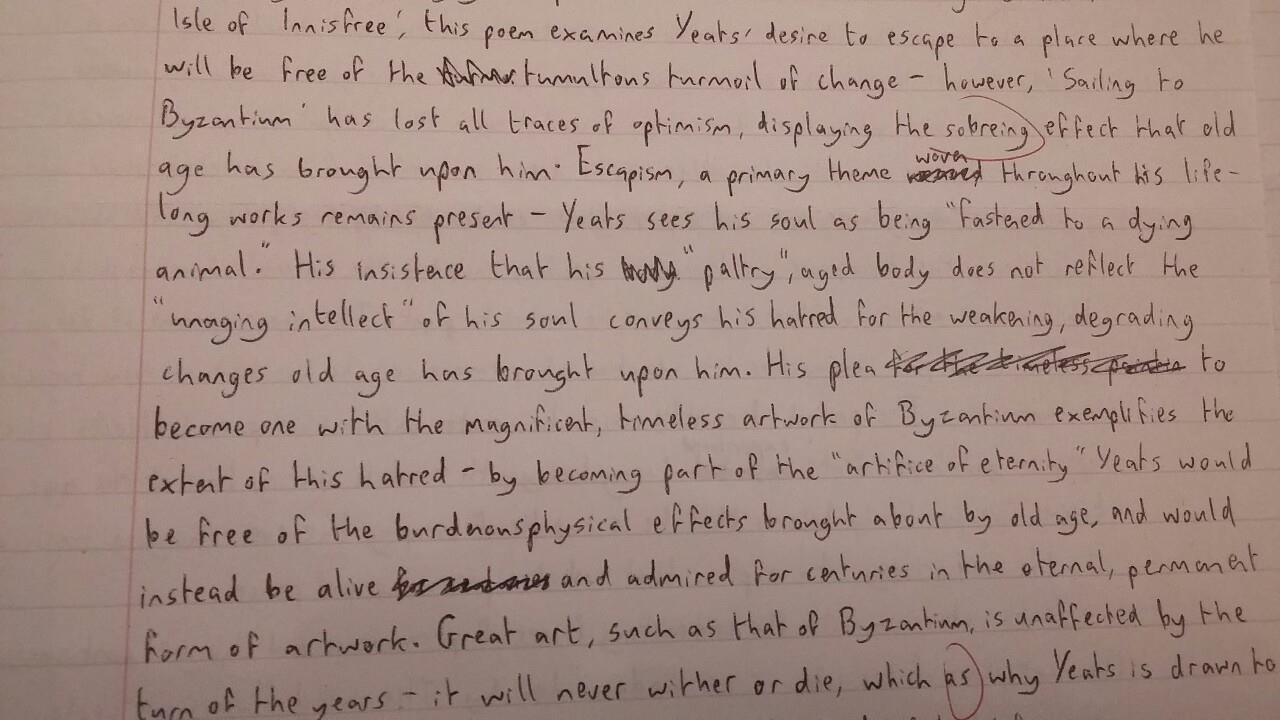 Isle of Innisfree', this poem examines Yeats' desire to escape to a place where he
will be free of the tumultous turmoil of change - however, 'Sailing to
Byzantium' has lost all traces of optimism, displaying the sobreing effect that old
age has brought upon him. Escapism, a primary theme woven throughout his life-
long works remains present - Yeats sees his soul as being "fastened to a dying
animal." His insistence that his "paltry", aged body does not reflect the
"unaging intellect" of his soul conveys his hatred for the weakening, degrading
changes old age has brought upon him. His plea to
become one with the magnificent, timeless artwork of Byzantium exemplifies the
extent of this hatred - by becoming part of the "artifice of eternity" Yeats would
be free of the burdenous physical effects brought about by old age, and would
instead be alive and admired for centuries in the eternal, permanent
form of artwork. Great art, such as that of Byzantium, is unaffected by the
turn of the years - it will never wither or die, which as why Yeats is drawn to